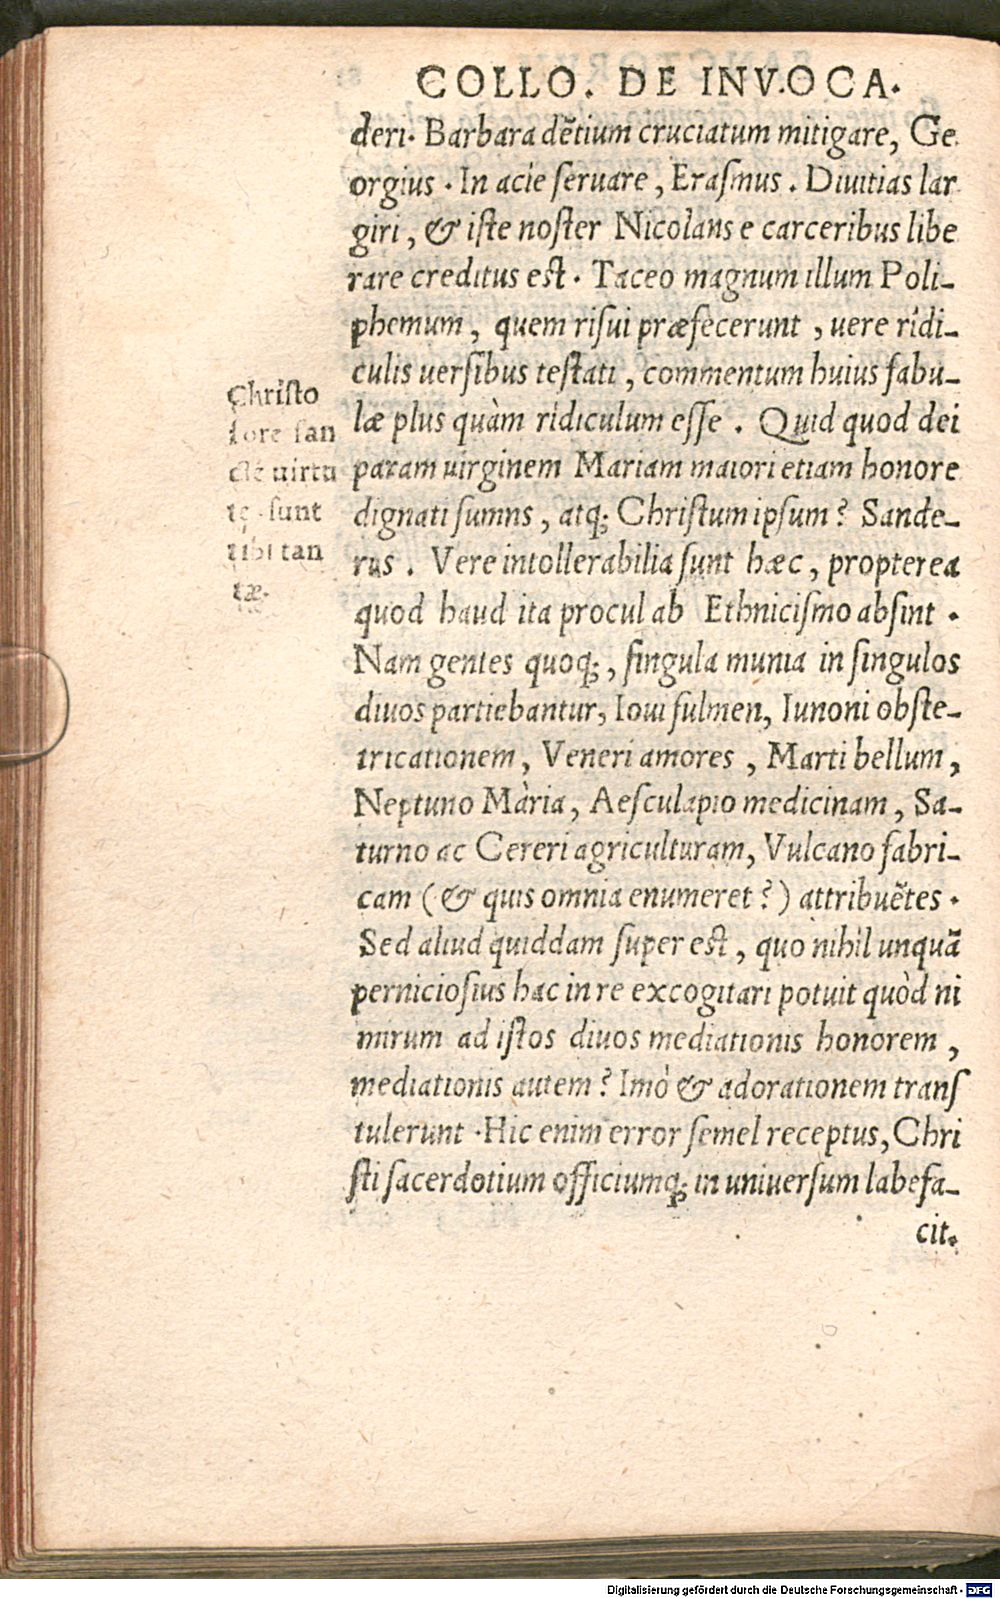 COLLO. DE INV.OCA.
deri. Barbara dẽtium cruciatum mitigare, Ge
orgius. In acie seruare, Erasmus. Diuitias lar
giri, & iste noster Nicolaus e carceribus libe
rare creditus est. Taceo magnum illum Poli-
phemum, quem risui præfecerunt, uere ridi-
culis uersibus testati, commentum huius fabu-
læ plus quàm ridiculum esse. Quid quod dei
param uirginem Mariam maiori etiam honore
dignati sumns, atq; Christum ipsum? Sande-
rus. Vere intollerabilia sunt hæc, propterea
quod haud ita procul ab Ethnicismo absint.
Nam gentes quoq;, singula munia in singulos
diuos partiebantur, Ioui fulmen, Iunoni obste-
tricationem, Veneri amores, Marti bellum,
Neptuno Mària, Aesculapio medicinam, Sa-
turno ac Cereri agriculturam, Vulcano fabri-
cam (& quis omnia enumeret?) attribuẽtes.
Sed aliud quiddam super est, quo nihil unquã
perniciosius hac in re excogitari potuit quòd ni
mirum ad istos diuos mediationis honorem,
mediationis autem? Imò & adorationem trans
tulerunt. Hic enim error semel receptus, Chri
sti sacerdotium officiumq; in uniuersum labefa-
cit.
Christo
fore san
ctè uirtu
te sunt
tibi tan
tæ.
Digitalisierung gefördert durch die Deutsche Forschungsgemeinschaft - DFG